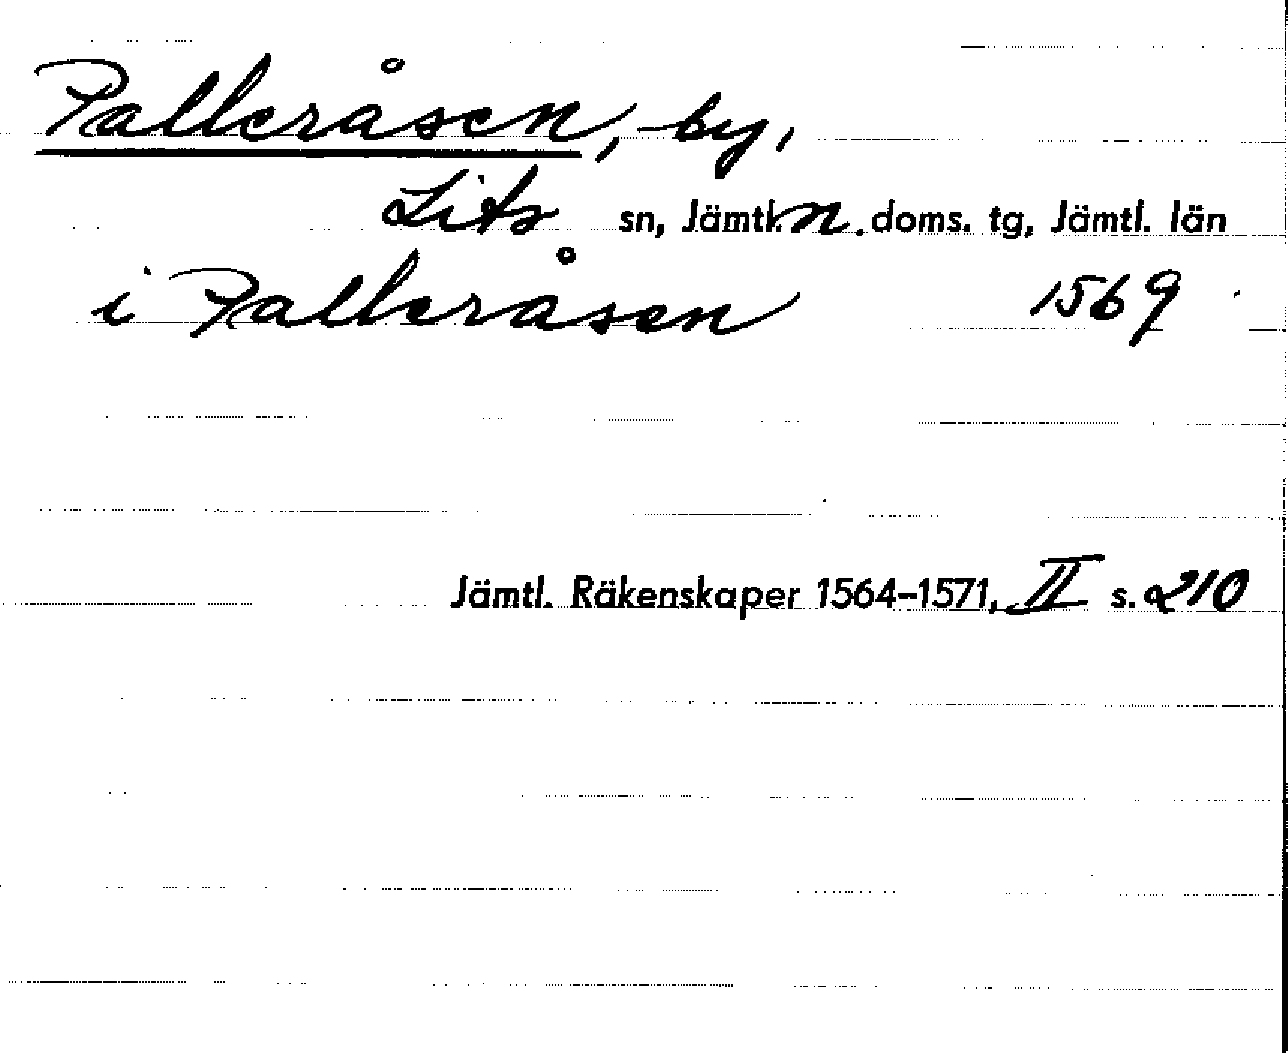 Palleråsen, by,
Lits sn, Jämtl. n. doms. tg, Jämtl. län
i Palleråsen 1569
Jämtl. Räkenskaper 1564-1571, II s. 210